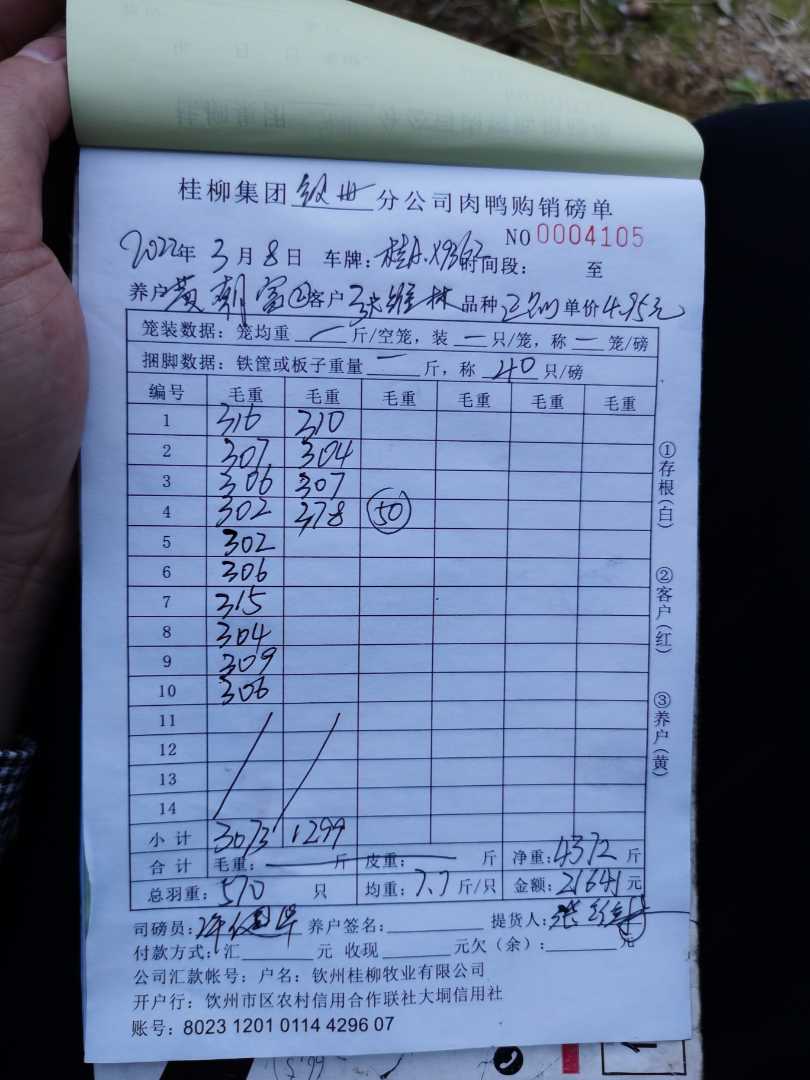 桂柳集团 钦州 分公司肉鸭购销磅单
NO 0004105
2022年 3月 8日 车牌: 时间段: 至
养户 黄朝富② 客户 张维林 品种 单价 4.95元
笼装数据:笼均重 一 斤/空笼,装 一 只/笼,称 一 笼/磅
捆脚数据:铁筐或板子重量 一 斤,称 40 只/磅
编号 毛重 毛重 毛重 毛重 毛重 毛重
1 316 310
2 307 304
3 306 307
4 302 378 50
5 302
6 306
7 315
8 304
9 309
10 306
11
12
13
14
小计 3073 1299
合计 毛重: 斤 皮重: 斤 净重: 4372 斤
总羽重: 570 只 均重: 7.7 斤/只 金额: 21641 元
司磅员: 养户签名: 提货人: 张维林
付款方式:汇 元 收现 元欠(余): 元
公司汇款帐号:户名:钦州桂柳牧业有限公司
开户行:钦州市区农村信用合作联社大垌信用社
账号:8023 1201 0114 4296 07
①存根(白)
②客户(红)
③养户(黄)